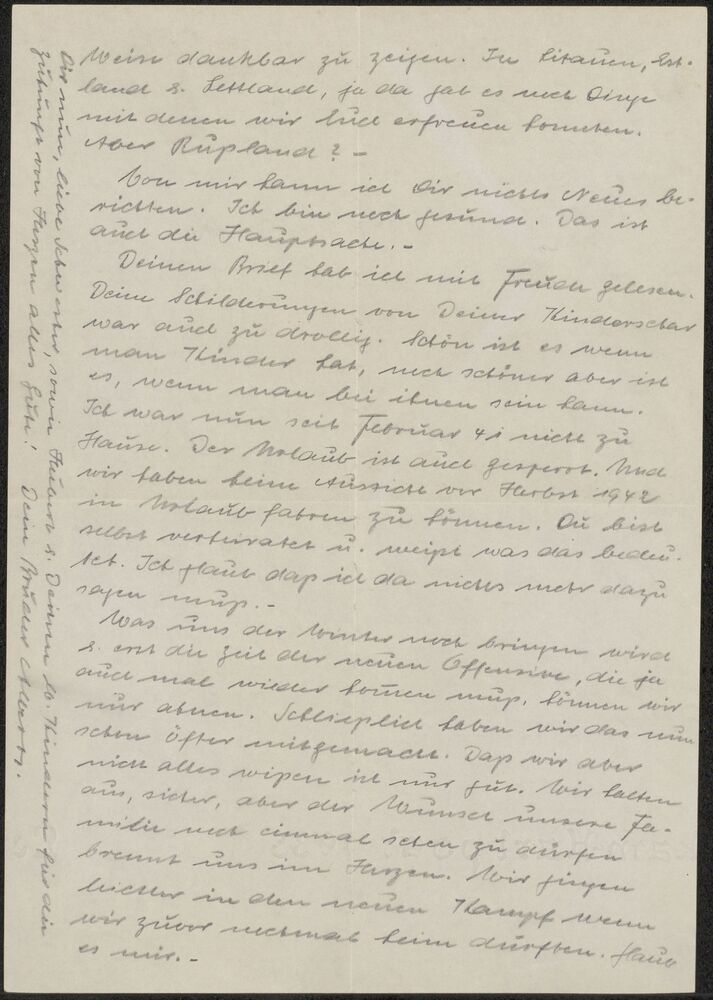 Weise dankbar zu zeigen. In Litauen, Est-
land u. Lettland, ja da gab es noch Dinge
mit denen wir Euch erfreuen konnten.
Aber Rußland? –
Von mir kann ich Dir nichts Neues be-
richten. Ich bin noch gesund. Das ist
auch die Hauptsache. –
Deinen Brief hab ich mit Freuden gelesen.
Deine Schilderungen von Deiner Kinderschar
war auch zu drollig. Schön ist es wenn
man Kinder hat, noch schöner aber ist
es, wenn man bei ihnen sein kann.
Ich war nun seit Februar 41 nicht zu
Hause. Der Urlaub ist auch gesperrt. Und
wir haben keine Aussicht vor Herbst 1942
in Urlaub fahren zu können. Du bist
selbst verheiratet u. weißt was das bedeu-
tet. Ich glaub daß ich da nichts mehr dazu
sagen muß. –
Was uns der Winter noch bringen wird
u. erst die Zeit der neuen Offensive, die ja
auch mal wieder kommen muß, können wir
nur ahnen. Schließlich haben wir das nun
schon öfter mitgemacht. Daß wir aber
nicht alles wißen ist nur gut. Wir halten
aus, sicher, aber der Wunsch unsere Fa-
milie noch einmal sehen zu dürfen
brennt uns im Herzen. Wir gingen
leichter in den neuen Kampf wenn
wir zuvor nochmal heim dürften. Glaub
es mir. –
Dir nun, liebe Schwester, sowie Hubert u. Deinen lb. Kindern für die
Zukunft von Herzen alles Gute! Dein Bruder